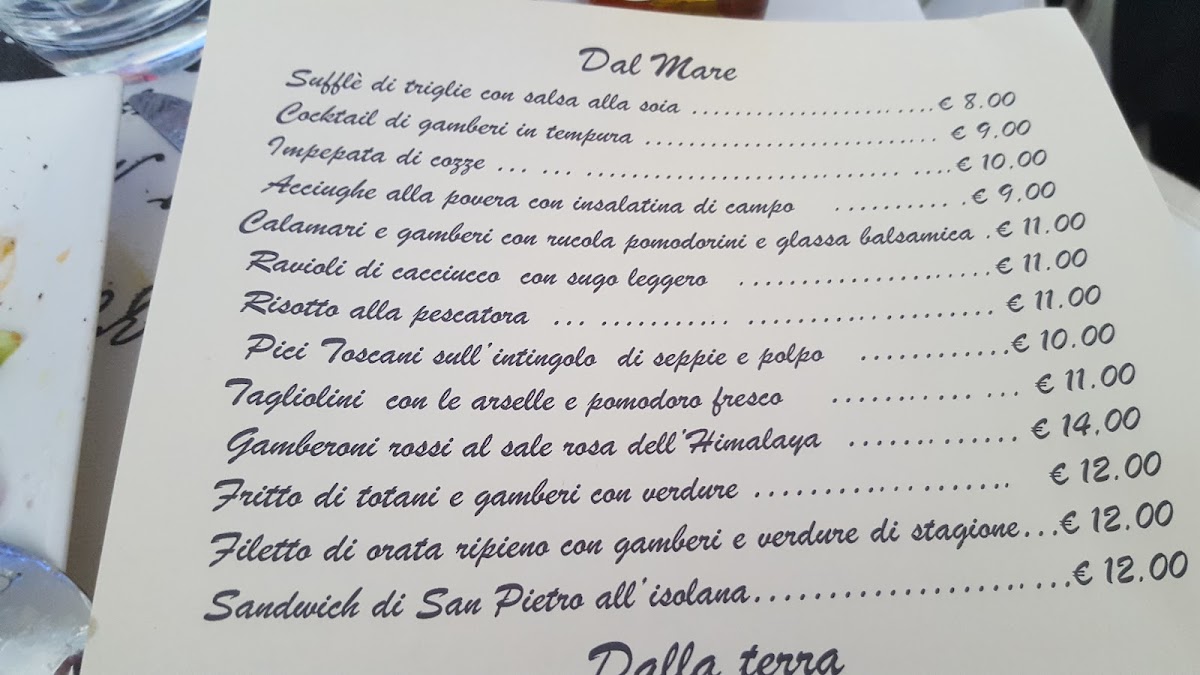 Dal Mare
Sufflè di triglie con salsa alla soia ........................€ 8.00
Cocktail di gamberi in tempura ............................ € 9.00
Impepata di cozze ... ... .................................. ....€ 10.00
Acciughe alla povera con insalatina di campo ........... .€ 9.00
Calamari e gamberi con rucola pomodorini e glassa balsamica .€ 11.00
Ravioli di cacciucco con sugo leggero ........................€ 11.00
Risotto alla pescatora ... ............ ....................... € 11.00
Pici Toscani sull'intingolo di seppie e polpo .............€ 10.00
Tagliolini con le arselle e pomodoro fresco ............ ... € 11.00
Gamberoni rossi al sale rosa dell'Himalaya ............... € 14.00
Fritto di totani e gamberi con verdure ..................... € 12.00
Filetto di orata ripieno con gamberi e verdure di stagione...€ 12.00
Sandwich di San Pietro all'isolana...........................€ 12.00
Dalla terra